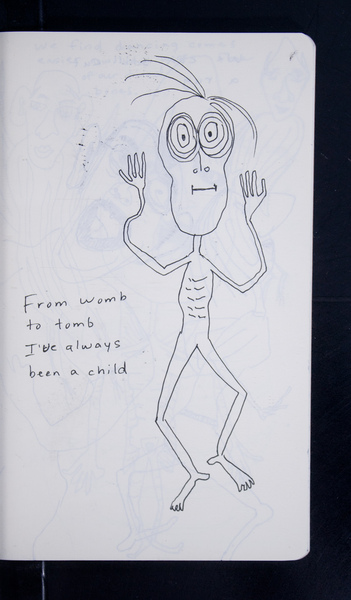 From womb
to tomb
I've always
been a child